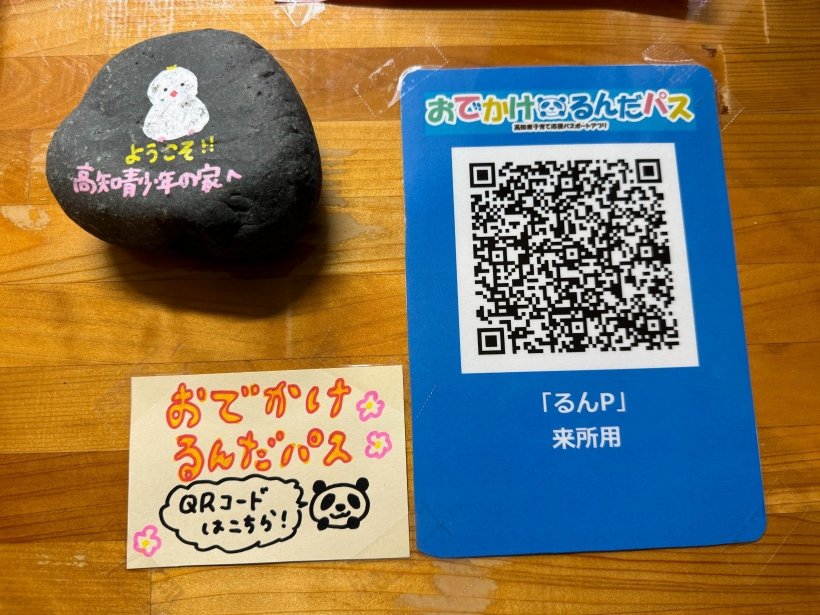 ようこそ!!
高知青少年の家へ
おでかけるんだパス
高知県子育て応援パスポートアプリ
「るんP」
来所用
おでかけ
るんだパス
QRコード
はこちら!